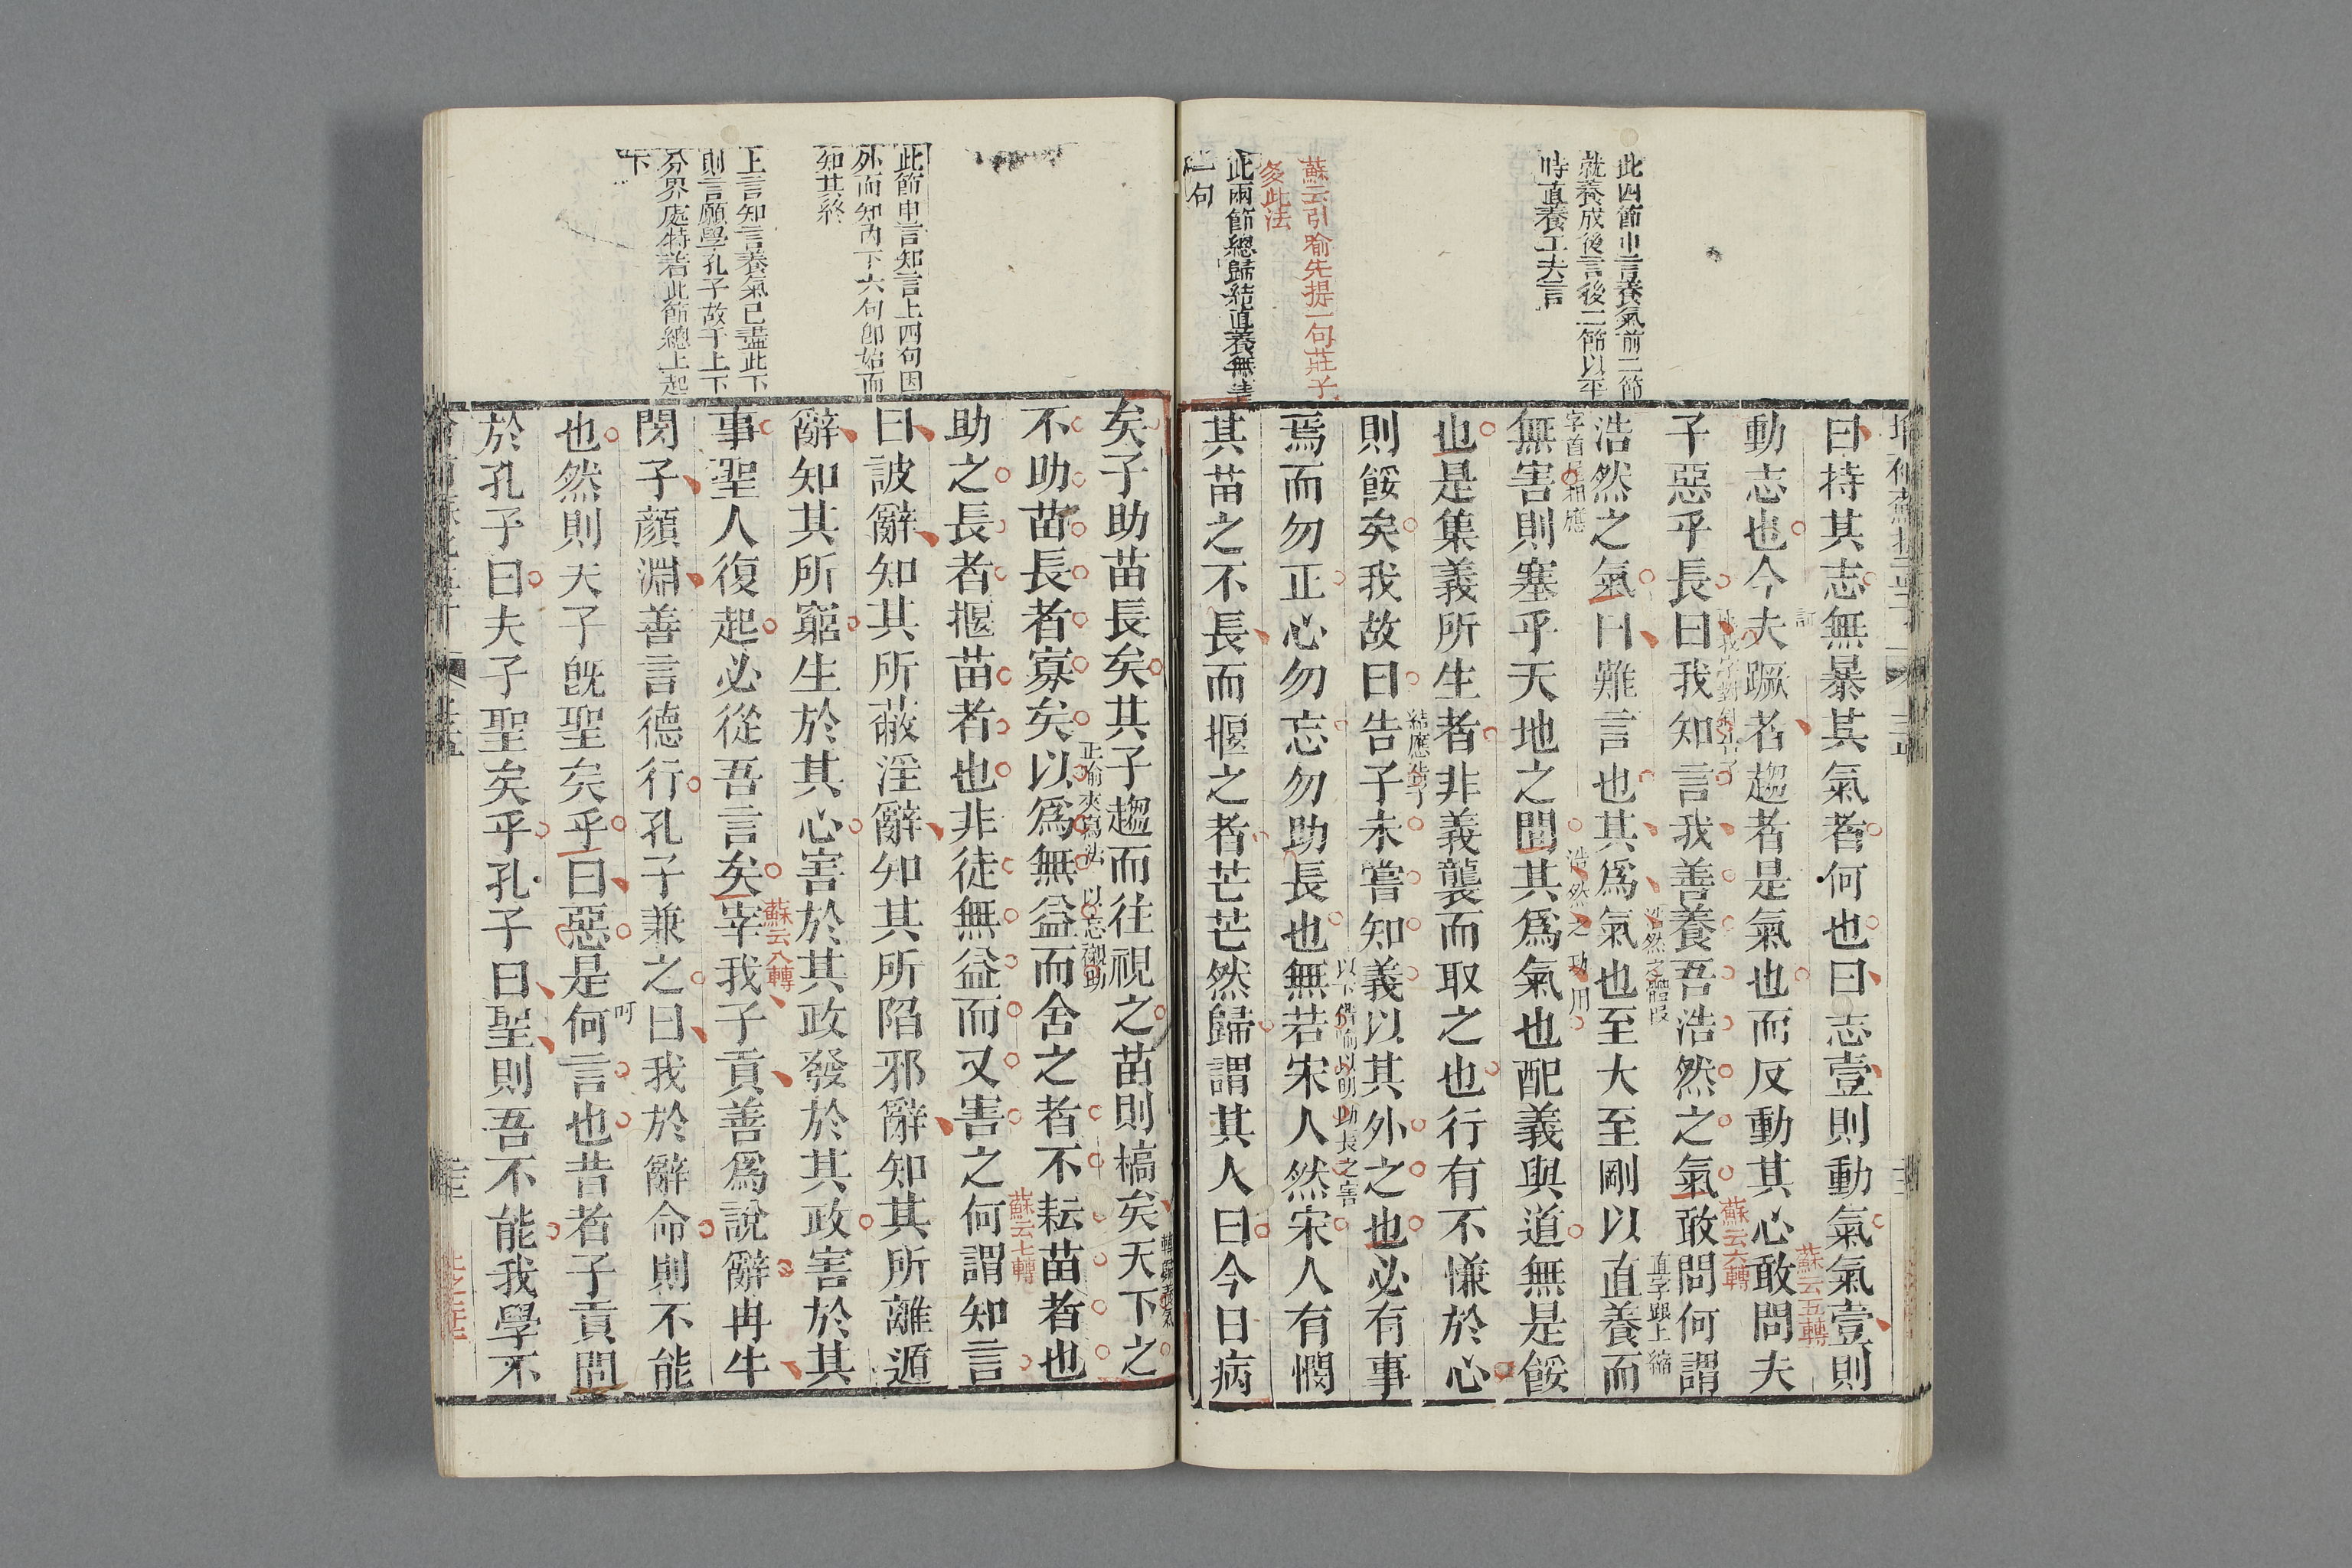 此四節申言養氣前二節
就養成後言後二節以平
時直養工夫言
蘇云引喻先提一句莊子
多此法
此兩節總歸結直養無害
一句
曰持其志無暴其氣者何也曰志壹則動氣氣壹則
動志也今夫蹶者趨者是氣也而反動其心敢問夫
蘇云五轉
子惡乎長曰我知言我善養吾浩然之氣敢問何謂
蘇云六轉
浩然之氣曰難言也其為氣也至大至剛以直養而
浩然之體段
直字跟上縮
字首尾相應
無害則塞乎天地之間其為氣也配義與道無是餒
浩然之功用
也是集義所生者非義襲而取之也行有不慊於心
則餒矣我故曰告子未嘗知義以其外之也必有事
結應告子
焉而勿正心勿忘勿助長也無若宋人然宋人有憫
以下借喻以明助長之害
其苗之不長而揠之者芒芒然歸謂其人曰今日病
此節申言知言上四句因
外而知內下六句即始而
知其終
上言知言養氣已盡此下
則言願學孔子故于上下
分界處特著此節總上起
下
矣予助苗長矣其子趨而往視之苗則槁矣天下之
不助苗長者寡矣以為無益而舍之者不耘苗者也
正喻夾寫法 以忘襯助
助之長者揠苗者也非徒無益而又害之何謂知言
蘇云七轉
曰詖辭知其所蔽淫辭知其所陷邪辭知其所離遁
辭知其所窮生於其心害於其政發於其政害於其
事聖人復起必從吾言矣宰我子貢善為說辭冉牛
蘇云八轉
閔子顏淵善言德行孔子兼之曰我於辭命則不能
也然則夫子既聖矣乎曰惡是何言也昔者子貢問
呵
於孔子曰夫子聖矣乎孔子曰聖則吾不能我學不